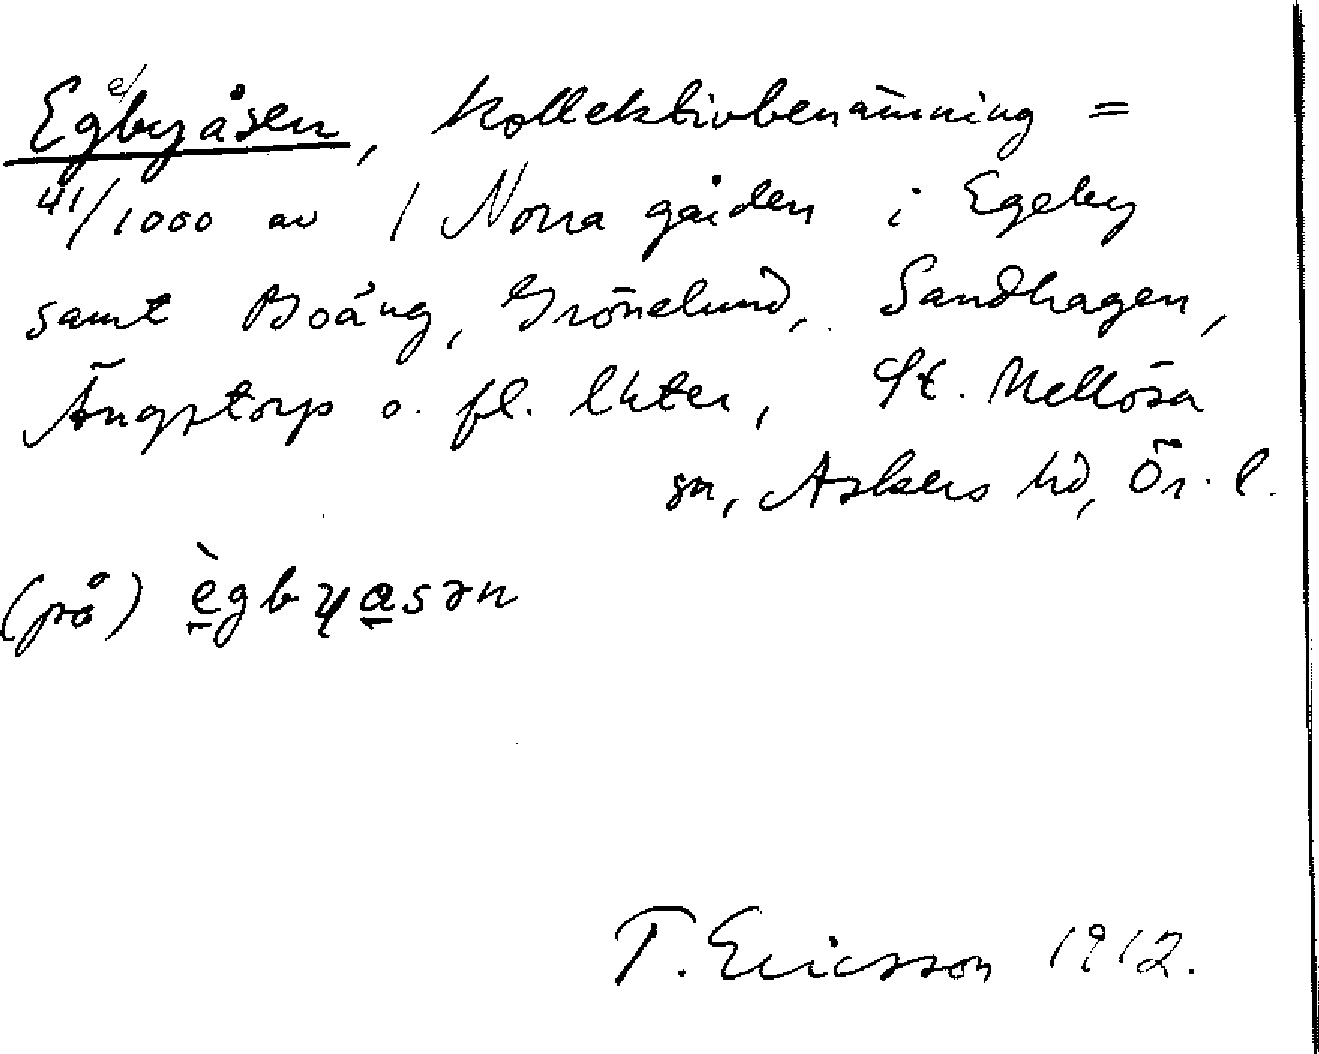 Egebyåsen, kollektivbenämning =
41/1000 av 1 Norra gården i Egeby
samt Boäng, Grönelund, Sandhagen,
Ängstorp o. fl. lhter, St. Mellösa
sn, Askers hd, Ör. l.
(på) ègbyasən
T. Ericsson 1912.